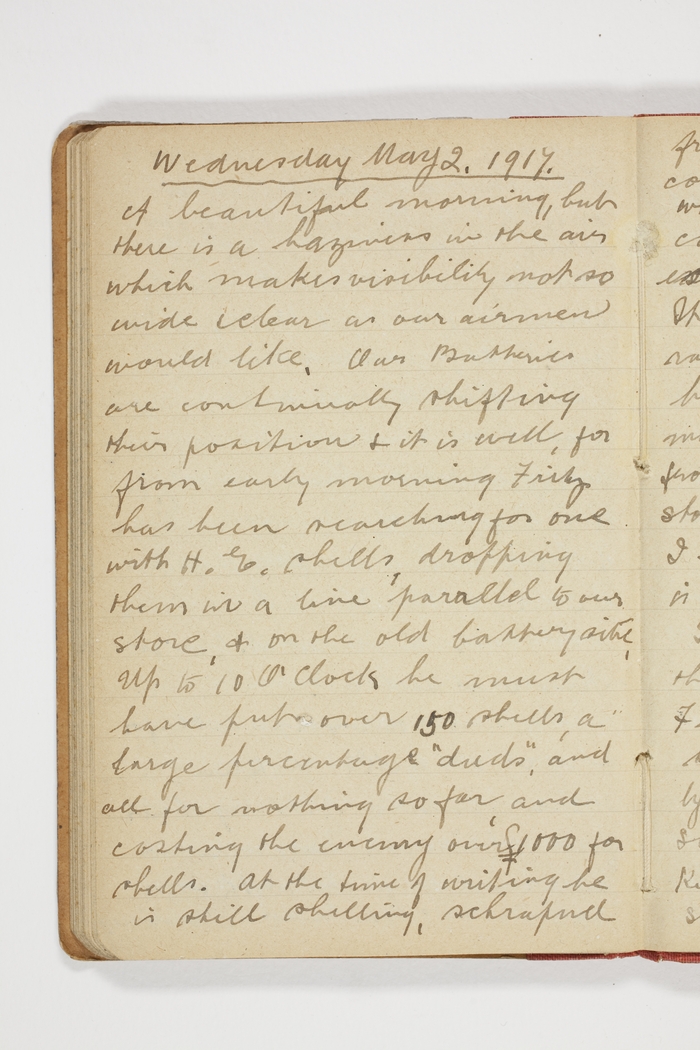 Wednesday May 2. 1917.
A beautiful morning, but
there is a haziness in the air
which makes visibility not so
wide & clear as our airmen
would like. Our Batteries
are continually shifting
their position & it is well, for
from early morning Fritz
has been searching for one
with H. E. shells, dropping
them in a line parallel to our
store, & on the old battery site,
Up to 10 O'Clock he must
have put over 150 shells, a
large percentage "duds", and
all for nothing so far, and
costing the enemy over £1000 for
shells. At the time of writing he
is still shelling, schrapnel